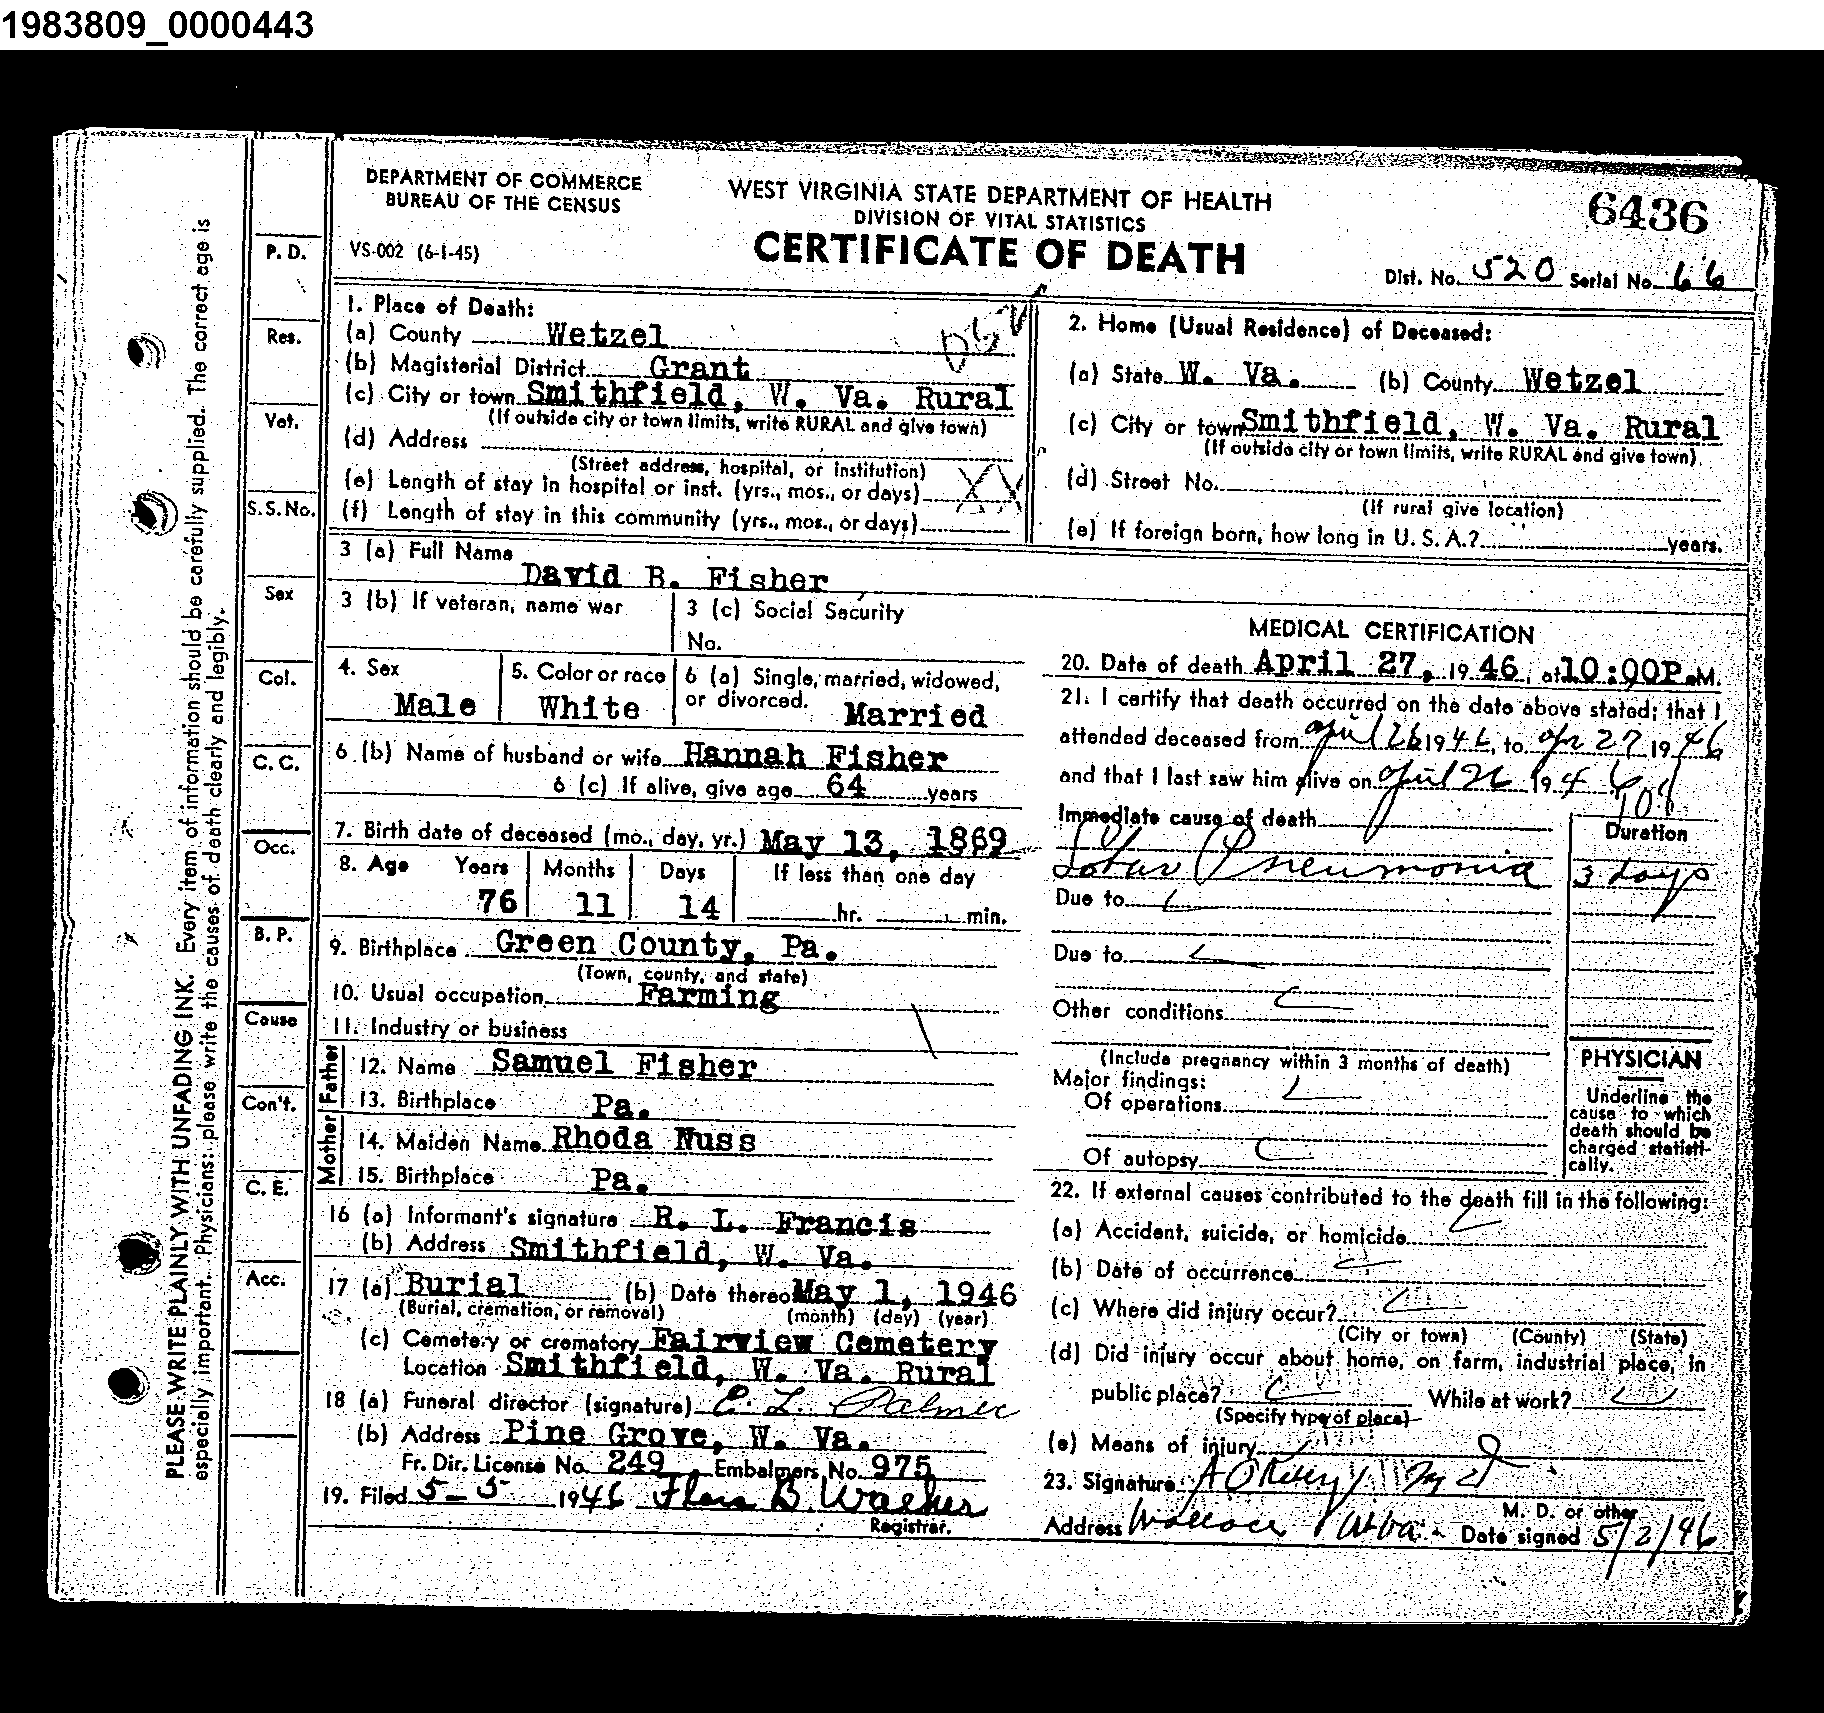 1983809_0000443
DEPARTMENT OF COMMERCE
BUREAU OF THE CENSUS
WEST VIRGINIA STATE DEPARTMENT OF HEALTH
DIVISION OF VITAL STATISTICS
CERTIFICATE OF DEATH
6436
VS-002 (6-1-45)
Dist. No. 520 Serial No. 66
PLEASE WRITE PLAINLY WITH UNFADING INK. Every item of information should be carefully supplied. The correct age is
especially important. Physicians: please write the causes of death clearly and legibly.
P. D.
Res.
Vet.
S. S. No.
Sex
Col.
C. C.
Occ.
B. P.
Cause
Con't.
C. E.
Acc.
1. Place of Death:
(a) County Wetzel
(b) Magisterial District Grant
(c) City or town Smithfield, W. Va. Rural
(If outside city or town limits, write RURAL and give town)
(d) Address
(Street address, hospital, or institution)
(e) Length of stay in hospital or inst. (yrs., mos., or days)
(f) Length of stay in this community (yrs., mos., or days)
2. Home (Usual Residence) of Deceased:
(a) State W. Va. (b) County Wetzel
(c) City or town Smithfield, W. Va. Rural
(If outside city or town limits, write RURAL and give town)
(d) Street No.
(If rural give location)
(e) If foreign born, how long in U. S. A.? years.
3 (a) Full Name
David B. Fisher
3 (b) If veteran, name war
3 (c) Social Security
No.
4. Sex
Male
5. Color or race
White
6 (a) Single, married, widowed,
or divorced. Married
6 (b) Name of husband or wife Hannah Fisher
6 (c) If alive, give age 64 years
7. Birth date of deceased (mo., day, yr.) May 13, 1869
8. Age Years Months Days If less than one day
76 11 14 hr. min.
9. Birthplace Green County, Pa.
(Town, county, and state)
10. Usual occupation Farming
11. Industry or business
Father
12. Name Samuel Fisher
13. Birthplace Pa.
Mother
14. Maiden Name Rhoda Nuss
15. Birthplace Pa.
16 (a) Informant's signature R. L. Francis
(b) Address Smithfield, W. Va.
17 (a) Burial (b) Date thereof May 1, 1946
(Burial, cremation, or removal) (month) (day) (year)
(c) Cemetery or crematory Fairview Cemetery
Location Smithfield, W. Va. Rural
18 (a) Funeral director (signature) E. L. Palmer
(b) Address Pine Grove, W. Va.
Fr. Dir. License No. 249 Embalmers No. 975
19. Filed 5-5 1946 B.
Registrar.
MEDICAL CERTIFICATION
20. Date of death April 27, 1946, at 10:00P.M.
21. I certify that death occurred on the date above stated; that I
attended deceased from April 26 1946, to Apr 27 1946
and that I last saw him alive on April 26 1946
Immediate cause of death
Duration
Lobar Pneumonia 3 days
Due to
Due to
Other conditions
(Include pregnancy within 3 months of death)
Major findings:
Of operations
Of autopsy
PHYSICIAN
Underline the
cause to which
death should be
charged statisti-
cally.
22. If external causes contributed to the death fill in the following:
(a) Accident, suicide, or homicide
(b) Date of occurrence
(c) Where did injury occur?
(City or town) (County) (State)
(d) Did injury occur about home, on farm, industrial place, in
public place? While at work?
(Specify type of place)
(e) Means of injury
23. Signature
M. D. or other
Address Wallace W Va. Date signed 5/2/46